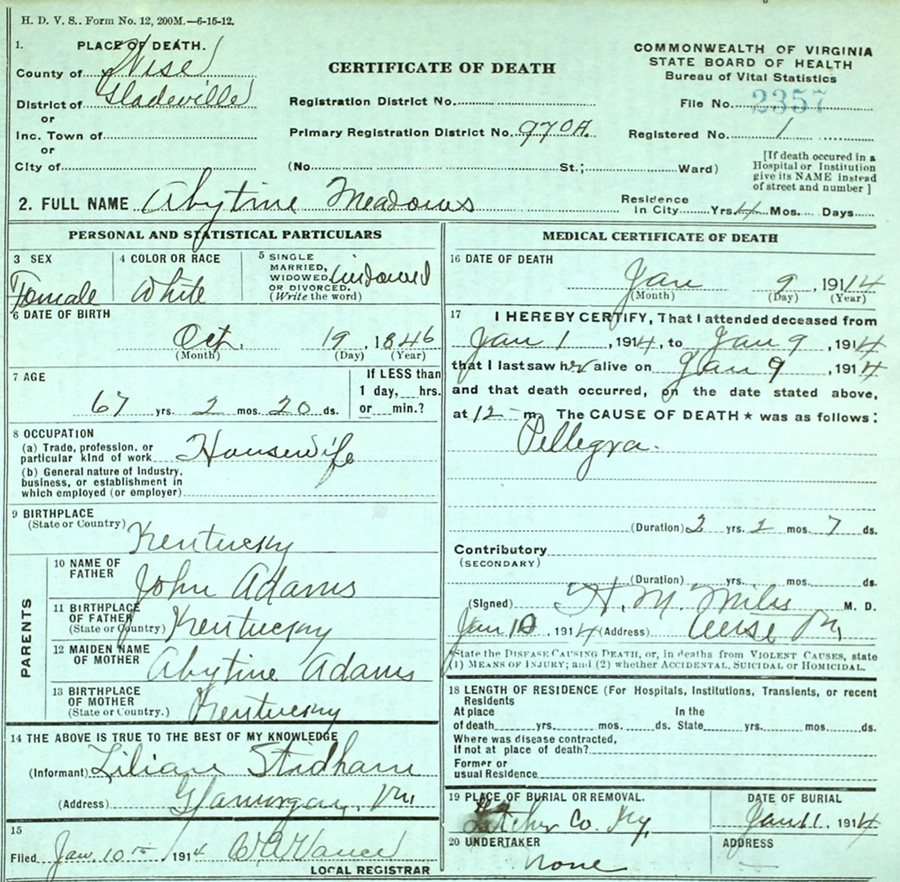 H. D. V. S.. Form No. 12, 200M.—6-15-12.
1. PLACE OF DEATH.
County of Wise
District of Gladeville
or
Inc. Town of
or
City of
CERTIFICATE OF DEATH
Registration District No.
Primary Registration District No. 970A.
(No. St.; Ward)
COMMONWEALTH OF VIRGINIA
STATE BOARD OF HEALTH
Bureau of Vital Statistics
File No. 2357
Registered No. 1
[If death occured in a
Hospital or Institution
give its NAME instead
of street and number ]
2. FULL NAME Abytine Meadows
Residence
In City Yrs. 4 Mos. Days
PERSONAL AND STATISTICAL PARTICULARS
3 SEX
Female
4 COLOR OR RACE
White
5 SINGLE
MARRIED,
WIDOWED
OR DIVORCED.
(Write the word)
Widowed
6 DATE OF BIRTH
Oct. 19, 1846
(Month) (Day) (Year)
7 AGE
67 yrs. 2 mos. 20 ds.
If LESS than
1 day, hrs.
or min.?
8 OCCUPATION
(a) Trade, profession, or
particular kind of work Housewife
(b) General nature of Industry,
business, or establishment in
which employed (or employer)
9 BIRTHPLACE
(State or Country) Kentucky
PARENTS
10 NAME OF
FATHER John Adams
11 BIRTHPLACE
OF FATHER
(State or Country) Kentucky
12 MAIDEN NAME
OF MOTHER Abytine Adams
13 BIRTHPLACE
OF MOTHER
(State or Country.) Kentucky
14 THE ABOVE IS TRUE TO THE BEST OF MY KNOWLEDGE
(Informant) Liliane Stidham
(Address) Glamorgan, Va
15
Filed Jan. 10th, 1914 W A Vance
LOCAL REGISTRAR
MEDICAL CERTIFICATE OF DEATH
16 DATE OF DEATH
Jan 9, 1914
(Month) (Day) (Year)
17 I HEREBY CERTIFY, That I attended deceased from
Jan 1, 1914, to Jan 9, 1914
that I last saw her alive on Jan 9, 1914
and that death occurred, on the date stated above,
at 12 m. The CAUSE OF DEATH ★ was as follows:
Pellegra.
(Duration) 2 yrs. 2 mos. 7 ds.
Contributory
(SECONDARY)
(Duration) yrs. mos. ds.
(Signed) H. M. Miles M. D.
Jan 10, 1914 (Address) Wise Va
*State the DISEASE CAUSING DEATH, or, in deaths from VIOLENT CAUSES, state
(1) MEANS OF INJURY; and (2) whether ACCIDENTAL, SUICIDAL or HOMICIDAL.
18 LENGTH OF RESIDENCE (For Hospitals, Institutions, Transients, or recent
Residents
At place In the
of death yrs. mos. ds. State yrs. mos. ds.
Where was disease contracted,
If not at place of death?
Former or
usual Residence
19 PLACE OF BURIAL OR REMOVAL.
Letcher Co. Ky,
DATE OF BURIAL
Jan 11, 1914
20 UNDERTAKER
none
ADDRESS